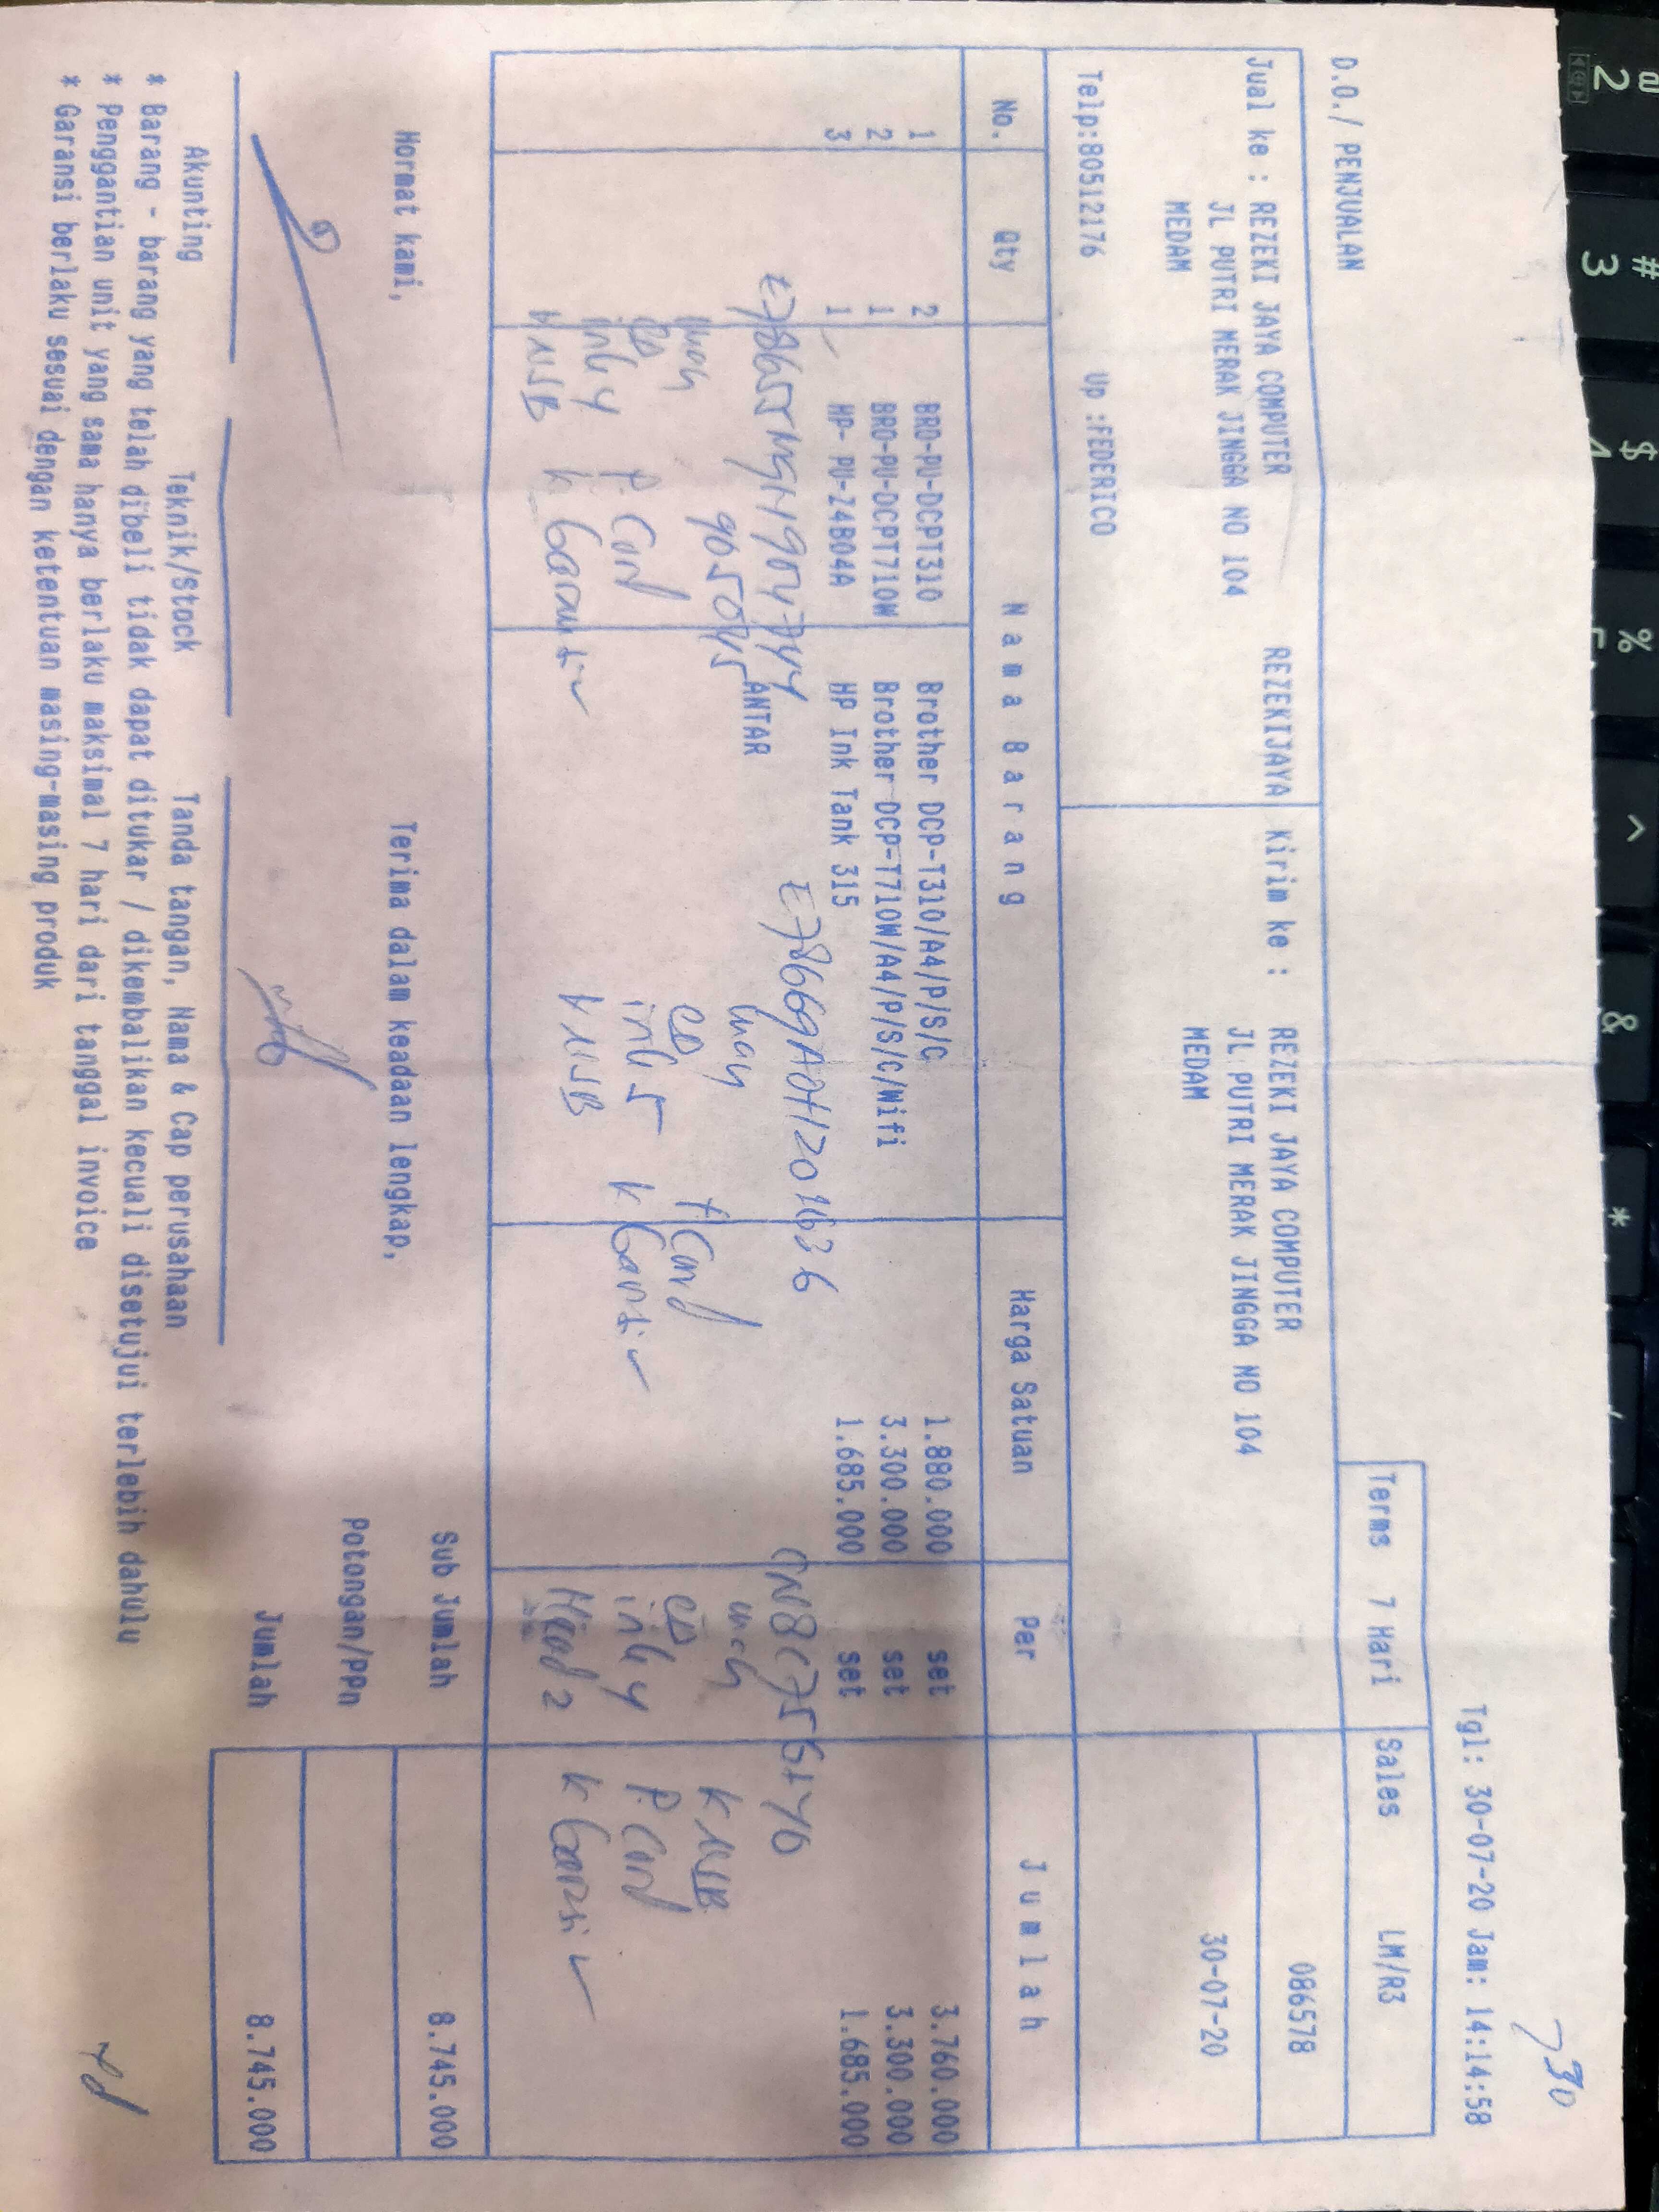 730
Tgl: 30-07-20 Jam: 14:14:58
Terms 7 Hari Sales LM/R3
D.O./ PENJUALAN
Jual ke : REZEKI JAYA COMPUTER REZEKIJAYA
JL PUTRI MERAK JINGGA NO 104
MEDAM
Telp:80512176 Up :FEDERICO
Kirim ke : REZEKI JAYA COMPUTER
JL PUTRI MERAK JINGGA NO 104
MEDAM
086578
30-07-20
No. Qty Nama Barang Harga Satuan Per Jumlah
1 2 BRO-PU-DCPT310 Brother DCP-T310/A4/P/S/C 1.880.000 set 3.760.000
2 1 BRO-PU-DCPT710W Brother DCP-T710W/A4/P/S/C/Wifi 3.300.000 set 3.300.000
3 1 HP- PU-Z4B04A HP Ink Tank 315 1.685.000 set 1.685.000
ANTAR
905045
CD P. Card
K USB K Garansi
CD P. Card
K USB K Garansi
K USB
CD P. Card
Head 2 K Garansi
Sub Jumlah 8.745.000
Potongan/PPn
Jumlah 8.745.000
Hormat kami, Terima dalam keadaan lengkap,
Akunting Teknik/Stock Tanda tangan, Nama & Cap perusahaan
* Barang - barang yang telah dibeli tidak dapat ditukar / dikembalikan kecuali disetujui terlebih dahulu
* Penggantian unit yang sama hanya berlaku maksimal 7 hari dari tanggal invoice
* Garansi berlaku sesuai dengan ketentuan masing-masing produk
@ 2
# 3
$
%
^
&
*